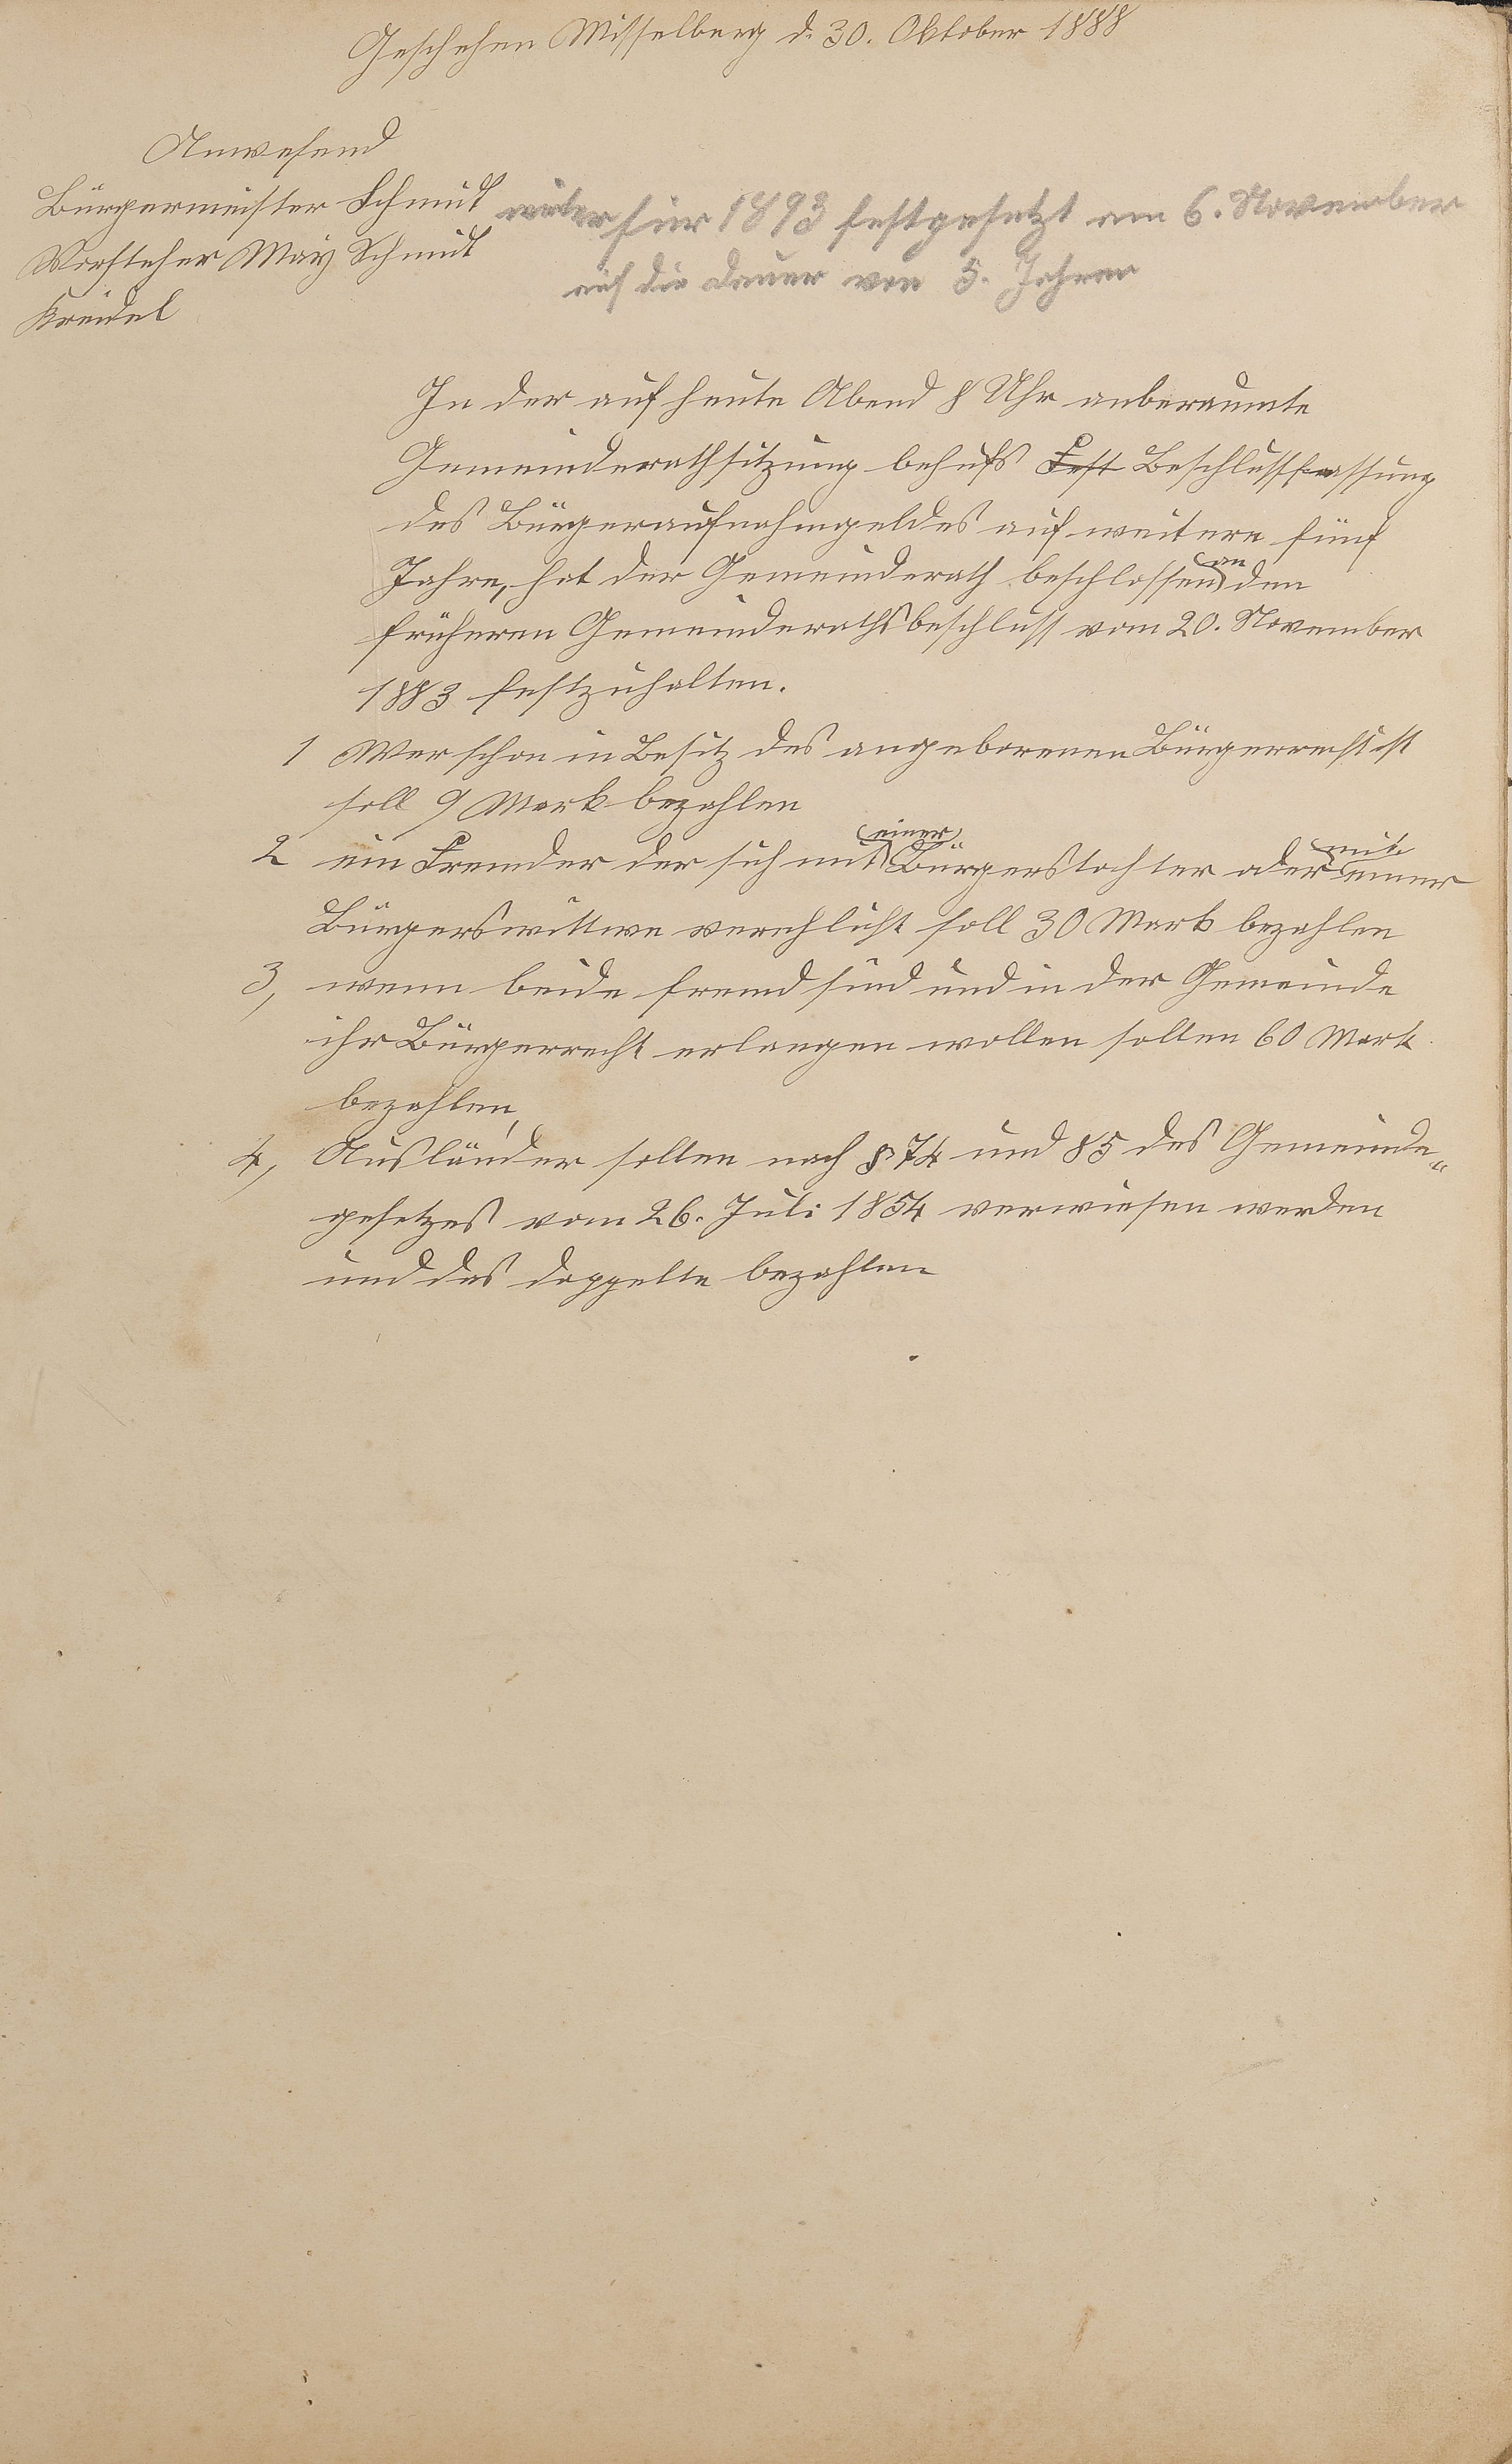 Geschehen Misselberg d. 30. Oktober 1888
Anwesend
Bürgermeister Schmidt
Vorsteher May Schmidt
Kreidel
weiter für 1893 festgesetzt am 6. November
auf die Dauer von 5. Jahren
In der auf heute Abend 8 Uhr anberaumte
Gemeinderathsitzung behufs Fest Beschlussfassung
des Bürgeraufnahmgeldes auf weitere fünf
Jahre, hat der Gemeinderath beschlossen an den
früheren Gemeinderathsbeschluss vom 20. November
1883 festzuhalten.
1 Wer schon in Besitz des angeborenen Bürgerrecht ist
soll 9 Mark bezahlen
2 ein Fremder der sich mit einer Bürgerstochter oder mit einer
Bürgerswittwe verehlicht soll 30 Mark bezahlen
3, wenn beide fremd sind und in der Gemeinde
ihr Bürgerrecht erlangen wollen sollen 60 Mark
bezahlen,
4, Ausländer sollen nach § 74 und 85 des Gemeinde„
gesetzes vom 26. Juli 1854 verwiesen werden
und das doppelte bezahlen